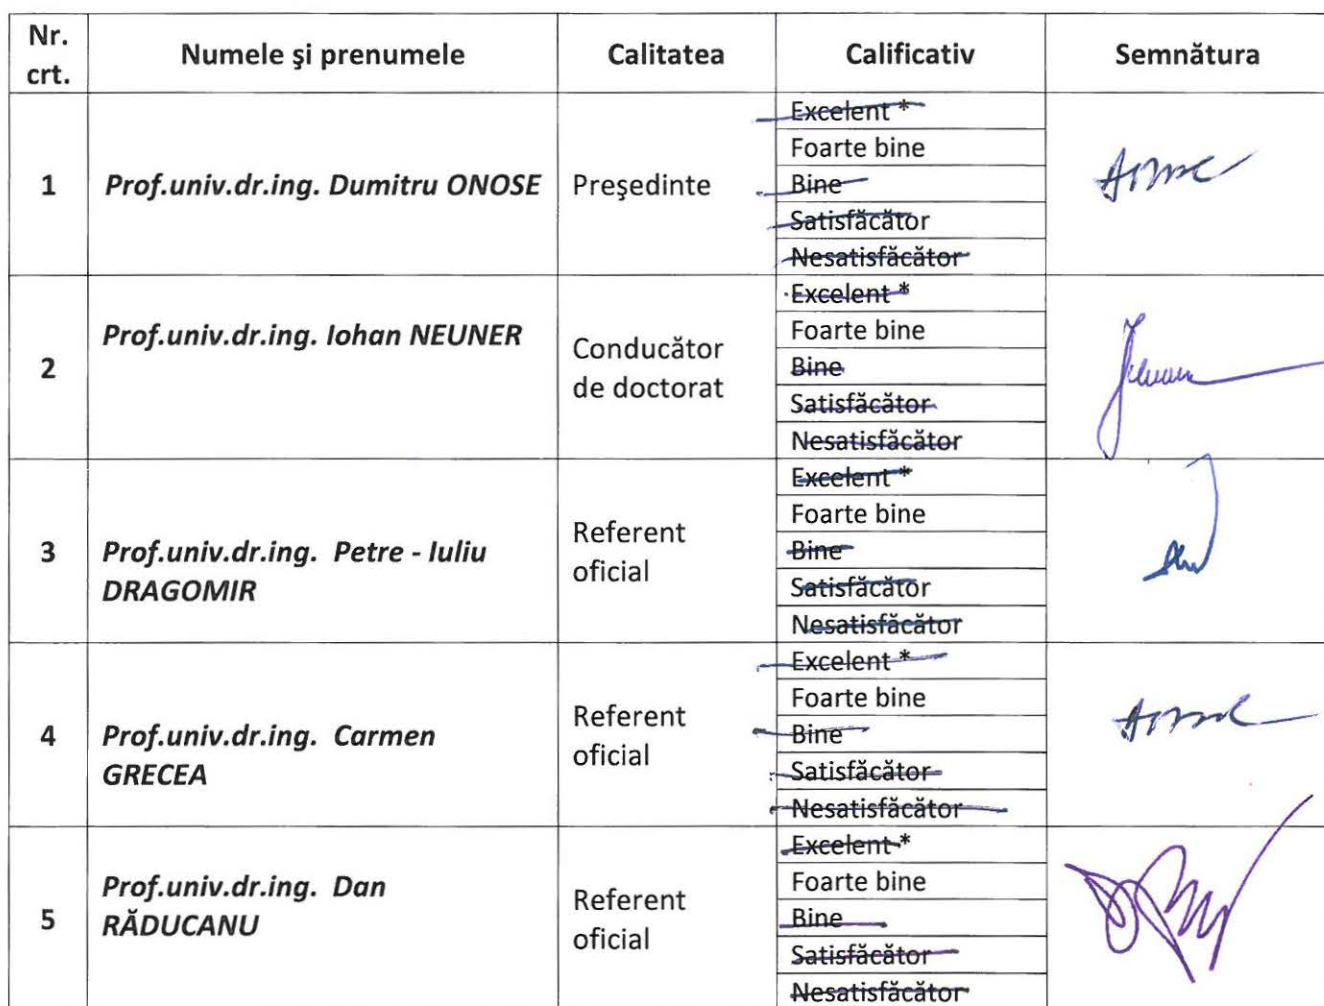 Nr. crt. Numele şi prenumele Calitatea Calificativ Semnătura
1 Prof.univ.dr.ing. Dumitru ONOSE Preşedinte
Excelent *
Foarte bine
Bine
Satisfăcător
Nesatisfăcător
2 Prof.univ.dr.ing. Iohan NEUNER Conducător
de doctorat
Excelent *
Foarte bine
Bine
Satisfăcător
Nesatisfăcător
3 Prof.univ.dr.ing. Petre - Iuliu
DRAGOMIR
Referent
oficial
Excelent *
Foarte bine
Bine
Satisfăcător
Nesatisfăcător
4 Prof.univ.dr.ing. Carmen
GRECEA
Referent
oficial
Excelent *
Foarte bine
Bine
Satisfăcător
Nesatisfăcător
5 Prof.univ.dr.ing. Dan
RĂDUCANU
Referent
oficial
Excelent *
Foarte bine
Bine
Satisfăcător
Nesatisfăcător